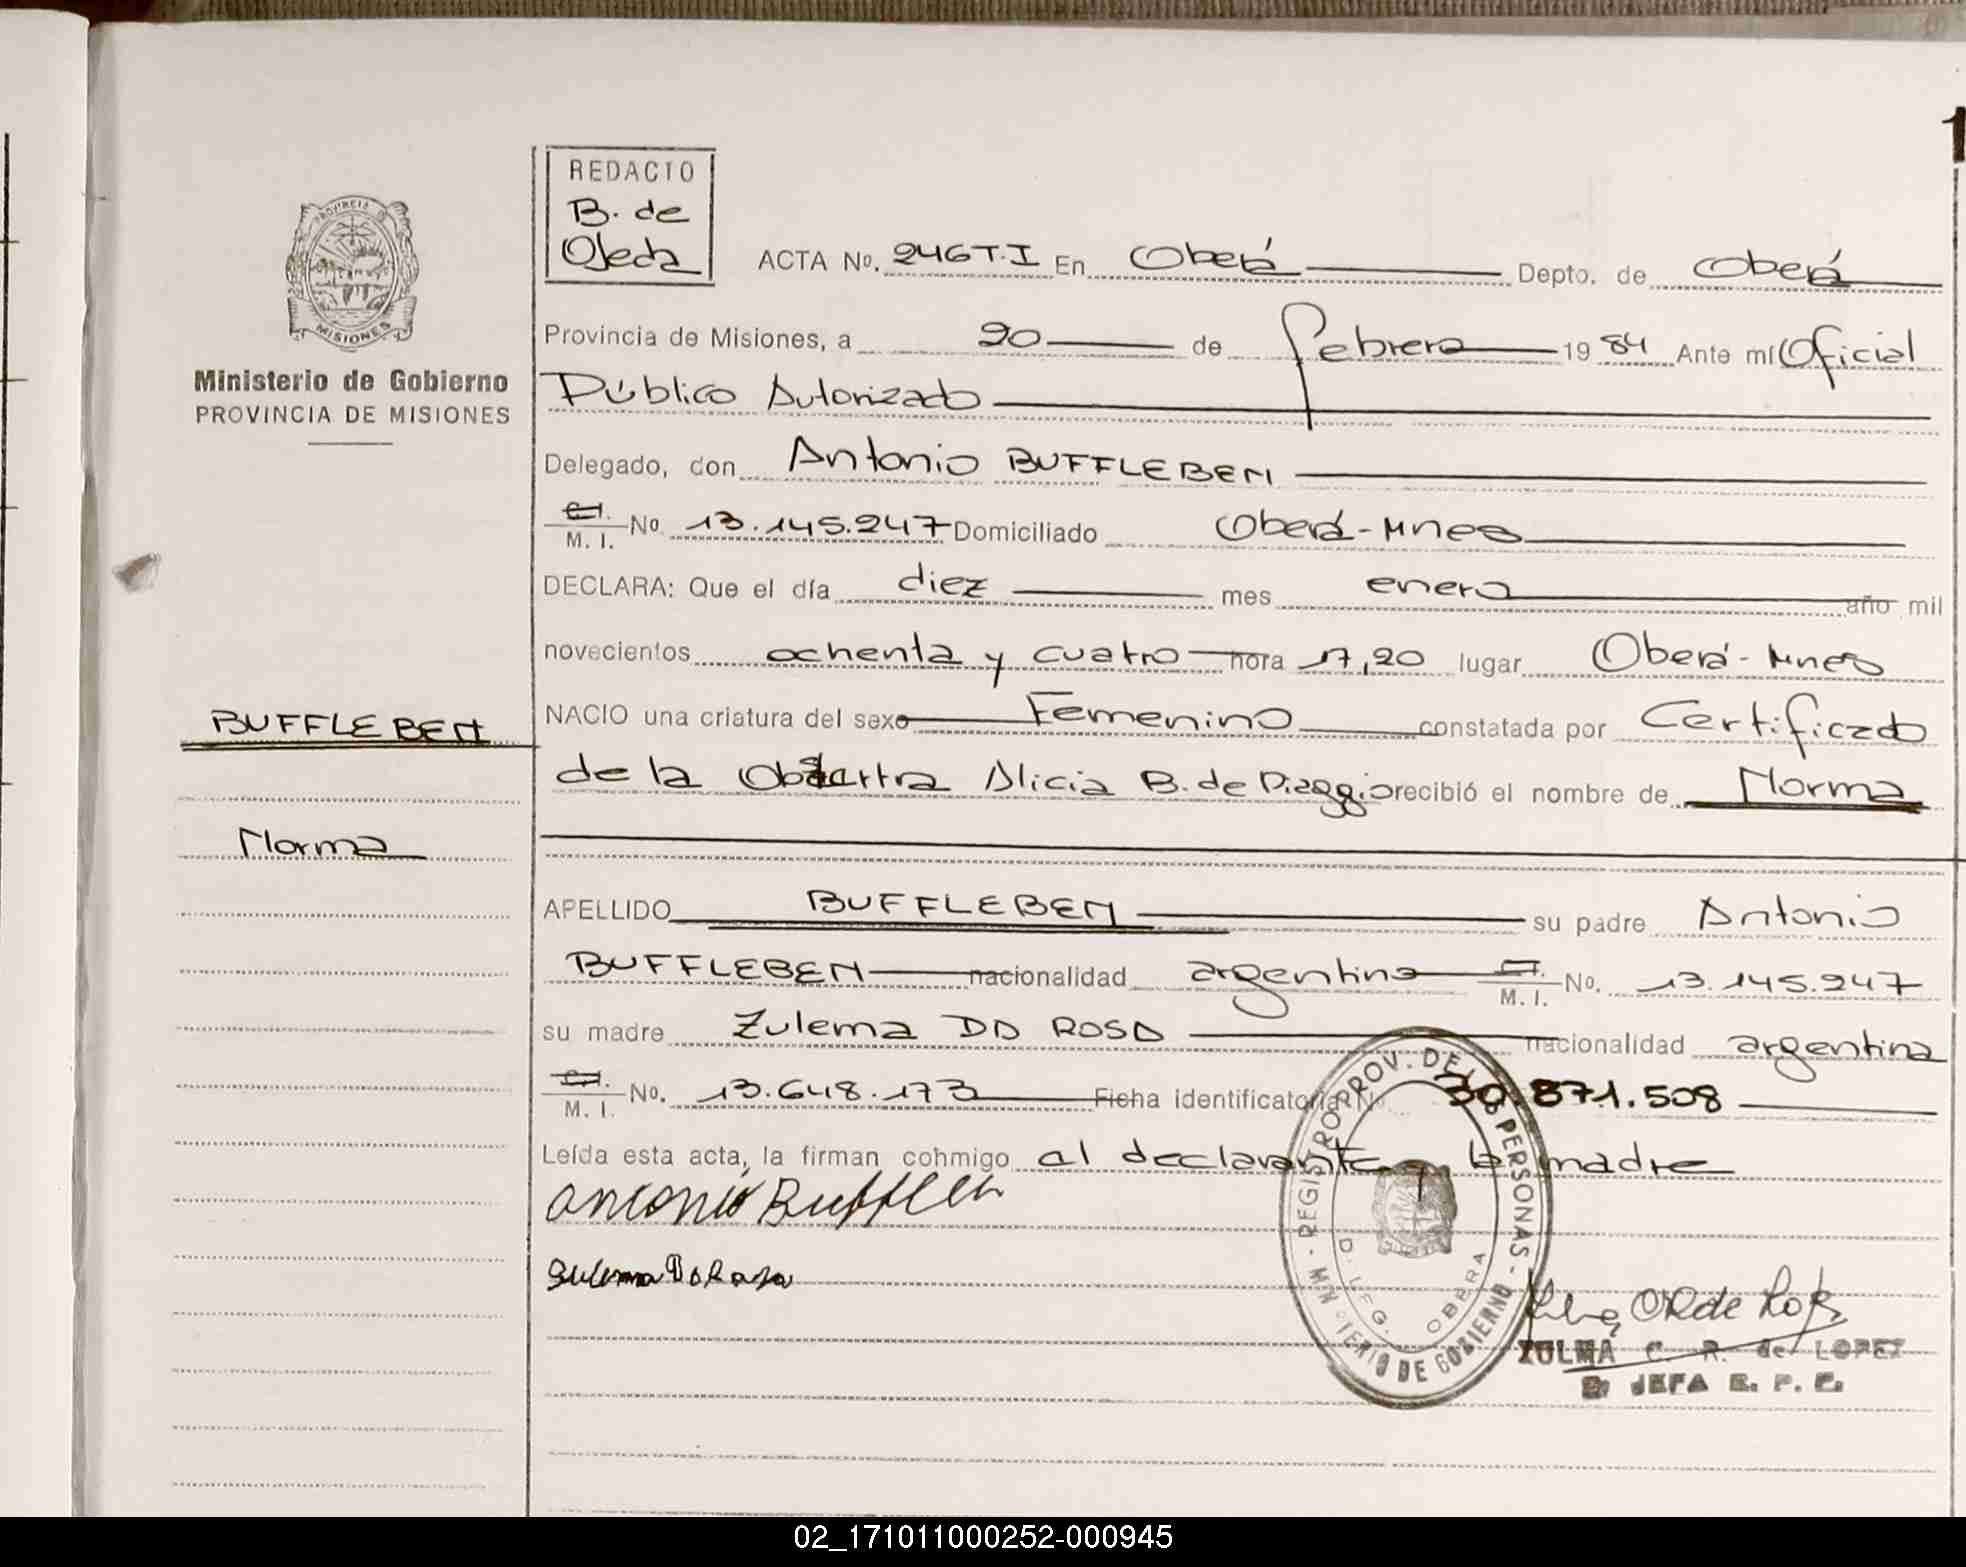 1
REDACTO
B. de
Ojeda
ACTA No. 246 T.I En Oberá Depto. de Oberá
PROVINCIA DE
MISIONES
Ministerio de Gobierno
PROVINCIA DE MISIONES
Provincia de Misiones, a 20 de febrero 1984 Ante mí Oficial
Público Autorizado
Delegado, don Antonio BUFFLEBEN
C.I. M. I. No. 13.145.247 Domiciliado Oberá-Mnes
DECLARA: Que el día diez mes enero año mil
novecientos ochenta y cuatro hora 17,20 lugar Oberá-Mnes
BUFFLEBEN
NACIO una criatura del sexo Femenino constatada por Certificado
de la Alicia B. de Piaggio recibió el nombre de Norma
Norma
APELLIDO BUFFLEBEN su padre Antonio
BUFFLEBEN nacionalidad argentina C.I. M. I. No. 13.145.247
su madre Zulema DA ROSA nacionalidad argentina
C.I. M. I. No. 13.648.173 Ficha identificatoria No. 30.871.508
Leída esta acta, la firman cohmigo al declarante y la madre
Antonio Buffleben
Sulema Da Rosa
REGISTRO PROV. DE LAS PERSONAS - MINISTERIO DE GOBIERNO -
DELEG. OBERA
ZULMA C. R. de LOPEZ
JEFA R. P. P.
02_171011000252-000945